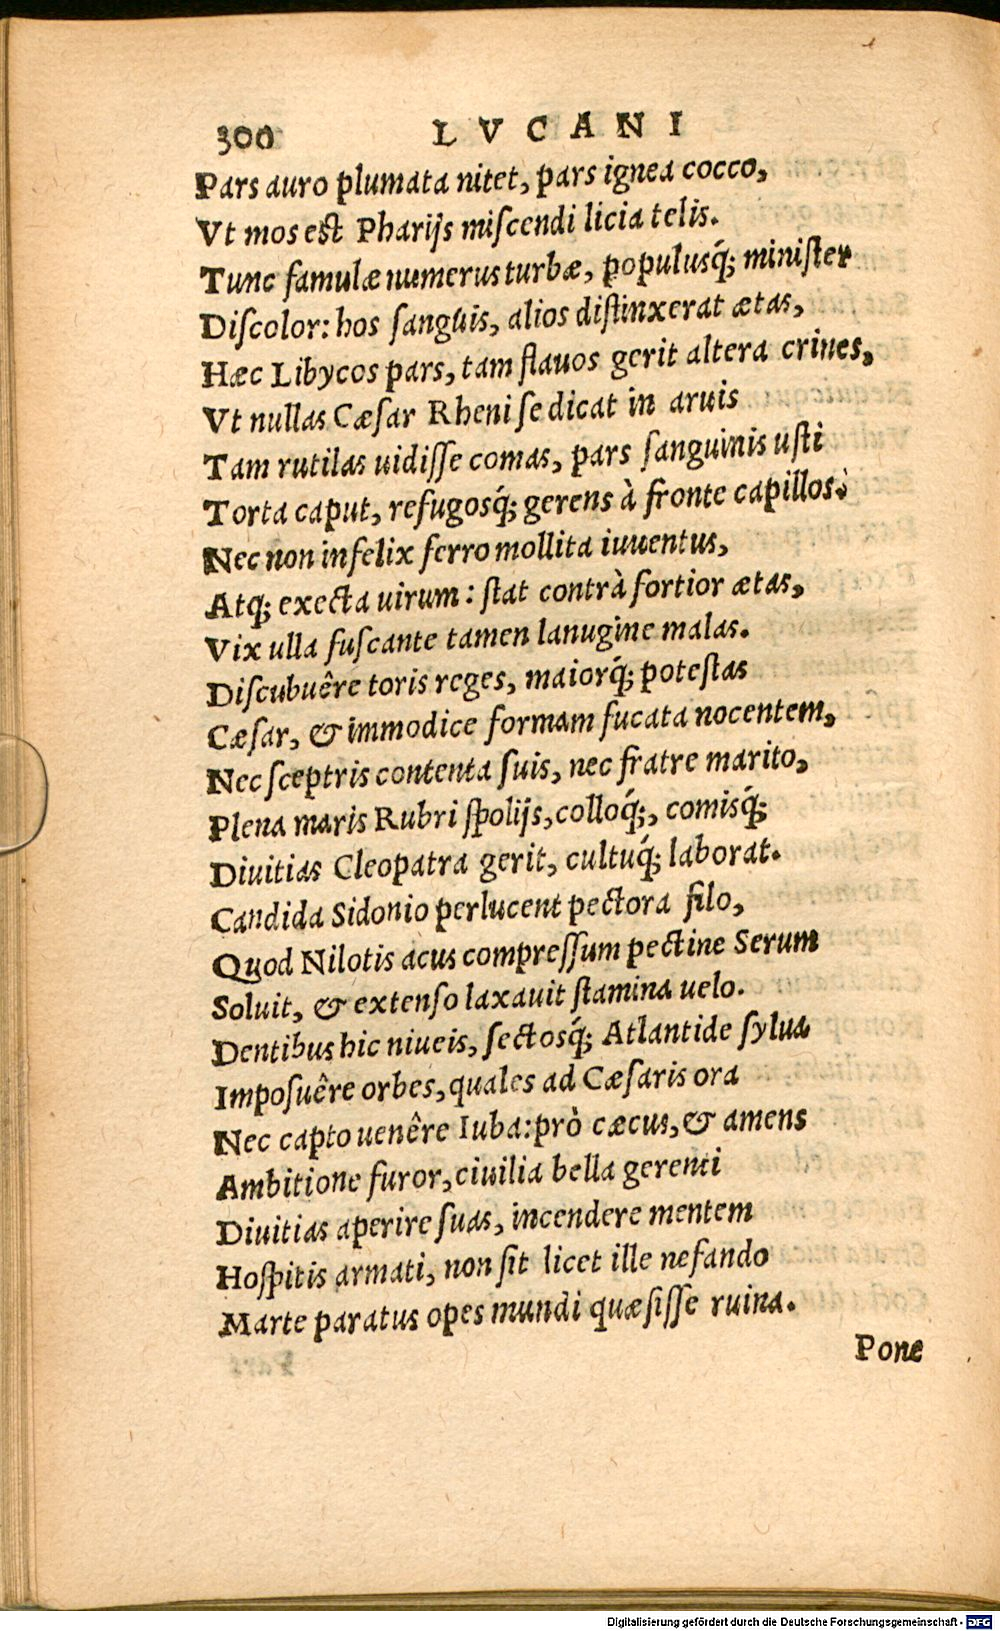 300 LVCANI
Pars auro plumata nitet, pars ignea cocco,
Vt mos est Pharijs miſcendi licia telis.
Tunc famulæ numerus turbæ, populusq́; miniſter
Diſcolor: hos ſanguis, alios diſtinxerat ætas,
Hæc Libycos pars, tam flauos gerit altera crines,
Vt nullas Cæſar Rheni ſe dicat in aruis
Tam rutilas uidiſſe comas, pars ſanguinis uſti
Torta caput, refugosq́; gerens à fronte capillos.
Nec non infelix ferro mollita iuuentus,
Atq; execta uirum: ſtat contrà fortior ætas,
Vix ulla fuſcante tamen lanugine malas.
Diſcubuêre toris reges, maiorq́; poteſtas
Cæſar, & immodice formam fucata nocentem,
Nec ſceptris contenta ſuis, nec fratre marito,
Plena maris Rubri ſpolijs, colloq́;, comisq́;
Diuitias Cleopatra gerit, cultuq́; laborat.
Candida Sidonio perlucent pectora filo,
Quod Nilotis acus compreſſum pectine Serum
Soluit, & extenſo laxauit ſtamina uelo.
Dentibus hic niueis, ſectosq́; Atlantide ſylua
Impoſuêre orbes, quales ad Cæſaris ora
Nec capto uenêre Iuba: prò cæcus, & amens
Ambitione furor, ciuilia bella gerenti
Diuitias aperire ſuas, incendere mentem
Hoſpitis armati, non ſit licet ille nefando
Marte paratus opes mundi quæſiſſe ruina.
Pone
Digitalisierung gefördert durch die Deutsche Forschungsgemeinschaft - DFG